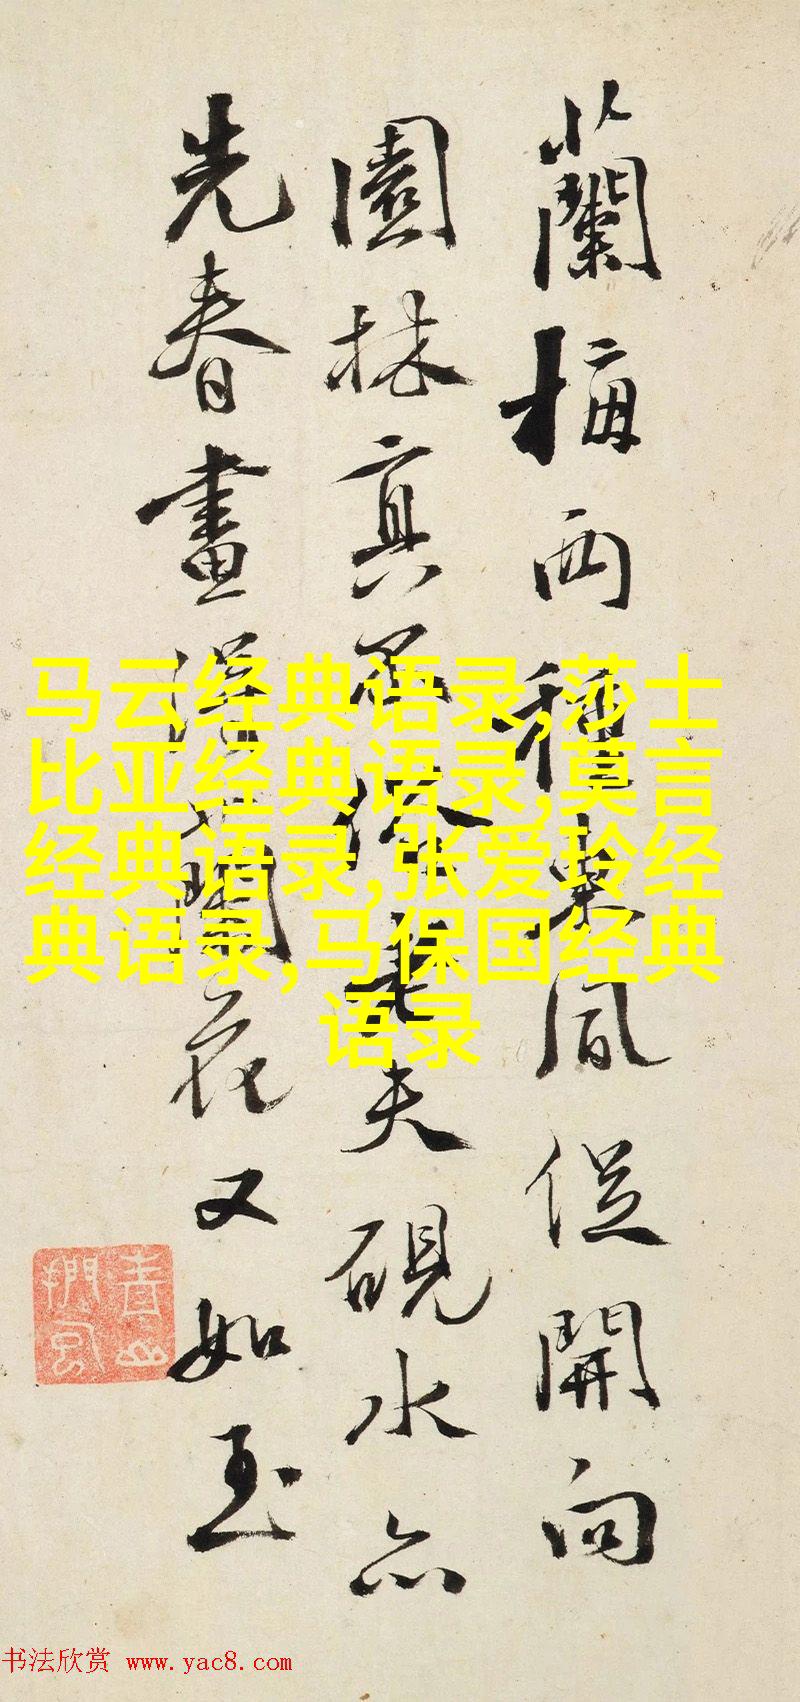 蘭梅兩種東風促開向
園林真不俗老夫硯水亦
先春畫蘭花又如玉
马云经典语录,莎士
比亚经典语录,莫言
经典语录,张爱玲经
典语录,马保国经典
语录
书法欣赏 www.yac8.com